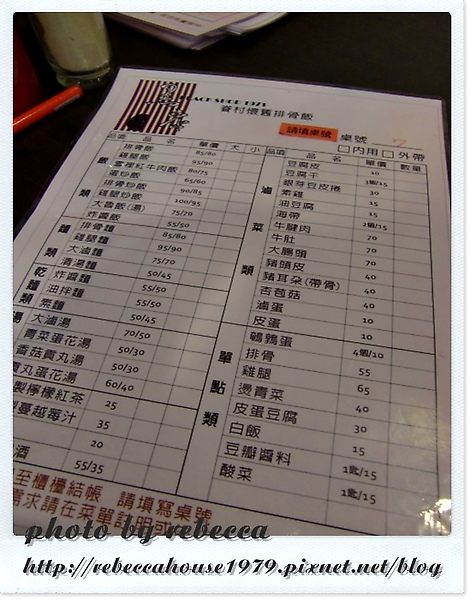 BACK SHOP 1971
眷村懷舊排骨飯
請填桌號 桌號 7
□內用 □外帶
品項 品名 單價 大 小
飯類
排骨飯 85/80
雞腿飯 95/90
紅牛肉飯 80/75
蛋炒飯 65/60
排骨炒飯 90/85
雞腿炒飯 100/95
大滷飯(湯) 75/70
炸醬飯 55/50
麵類
排骨麵 85/80
雞腿麵 95/90
大滷麵 75/70
清湯麵 50/45
乾麵類
炸醬麵 55/50
油拌麵 55/50
素麵 50/45
湯
大滷湯 70/50
青菜蛋花湯 50/30
香菇貢丸湯 50/30
貢丸蛋花湯 60/40
製檸檬紅茶 25
製蔓越莓汁 35
20
酒 55/35
品項 品名 單價 數量
滷菜類
豆腐皮
豆腐干 10
銀芽豆皮捲 1個/15
素雞 30
油豆腐 15
海帶 15
牛腱肉 2個/15
牛肚 70
大腸頭 70
豬頭皮 70
豬耳朵(帶骨) 40
杏苞菇 40
滷蛋 40
皮蛋 10
鵪鶉蛋 10
單點類
排骨 4個/10
雞腿 55
燙青菜 65
皮蛋豆腐 40
白飯 30
豆瓣醬料 15
酸菜 1匙/15
1匙/15
至櫃檯結帳 請填寫桌號
需求請在菜單註明或
photo by rebecca
http://rebeccahouse1979.pixnet.net/blog